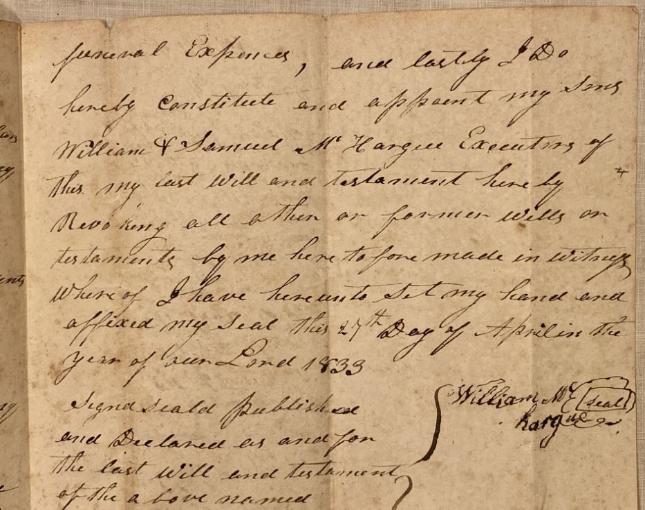 funeral Expences, and lastly I Do
hereby Constitute and appoint my Sons
William & Samuel Mc Hargue Executors of
this my last Will and testament hereby
Revoking all other or former wills or
testaments by me here tofore made in witness
Where of I have hereunto Set my hand and
affixed my Seal this 27th Day of April in the
year of our Lord 1833
Signd Seald published
and Declared as and for
the last Will and testament
of the above named
William Mc (Seal)
hargue